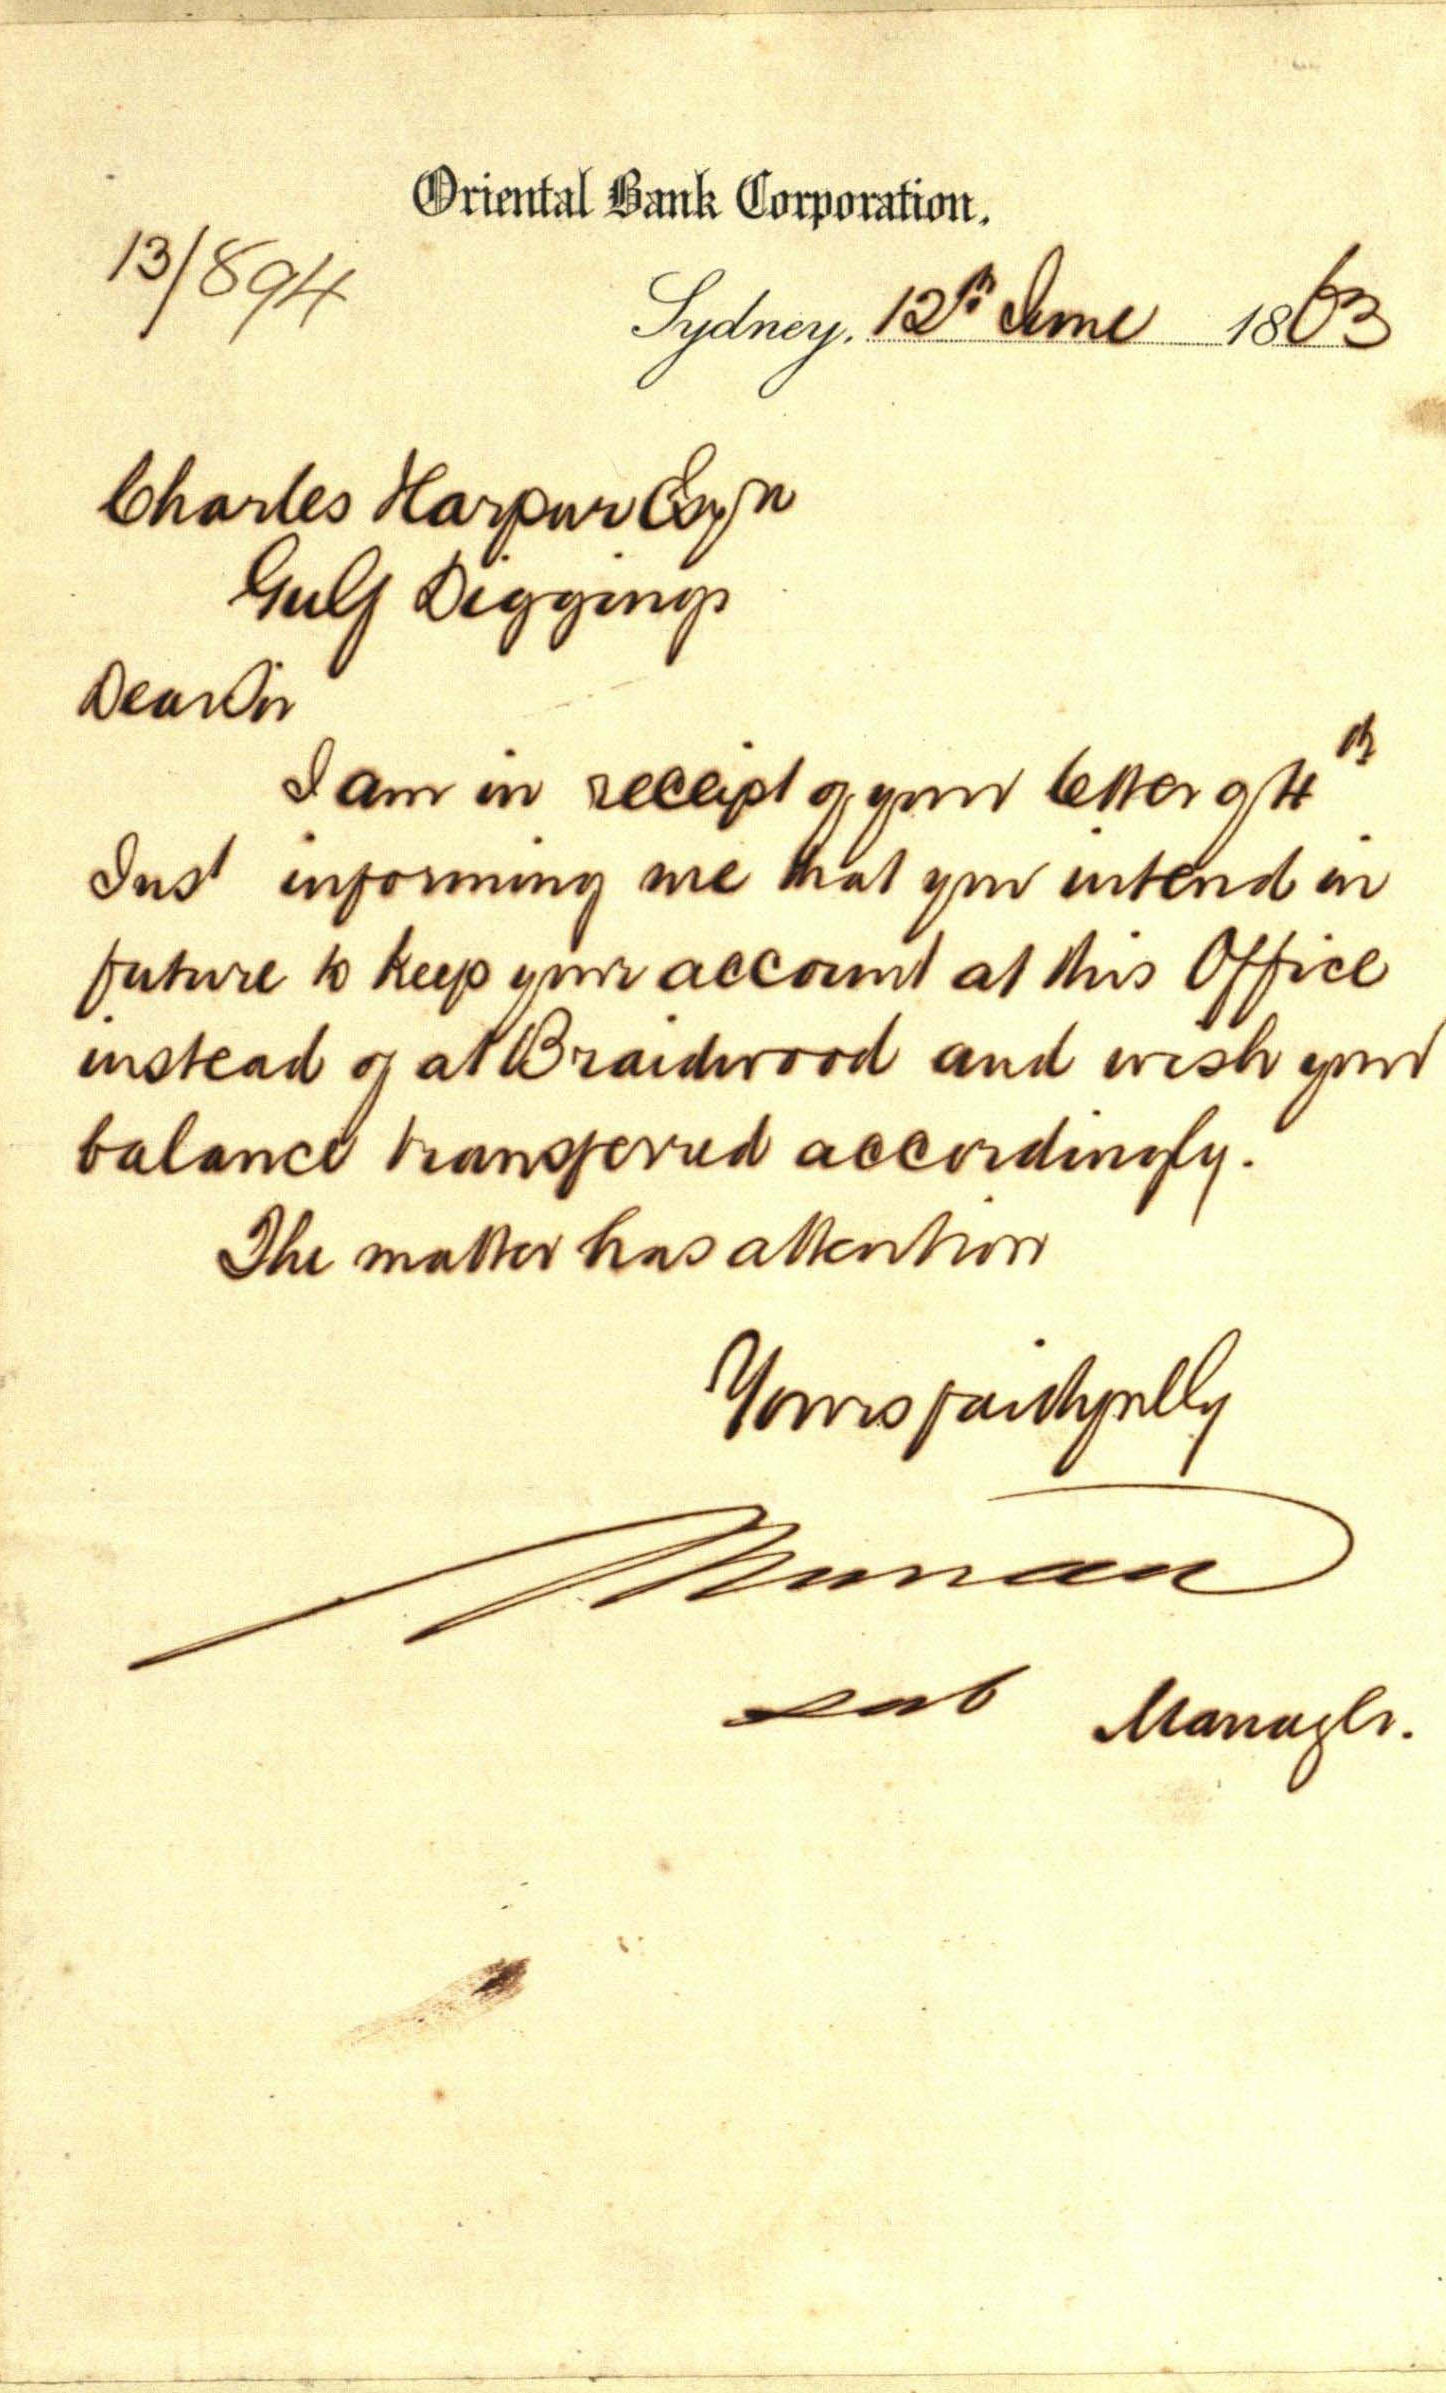 Oriental Bank Corporation.
13/894
Sydney, 12th June 1863
Charles Harpur Esqr
Gulf Diggings
Dear Sir
I am in receipt of your letter of 4th
Inst informing me that you intend in
future to keep your account at this Office
instead of at Braidwood and wish your
balance transferred accordingly.
The matter has attention
Yours faithfully
sub Manager.